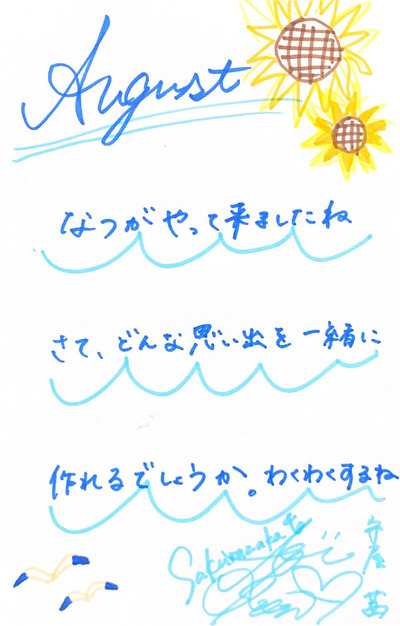 August
なつがやって来ましたね
さて、どんな思い出を一緒に
作れるでしょうか。わくわくするね
Sakurazaka46
守屋 茜